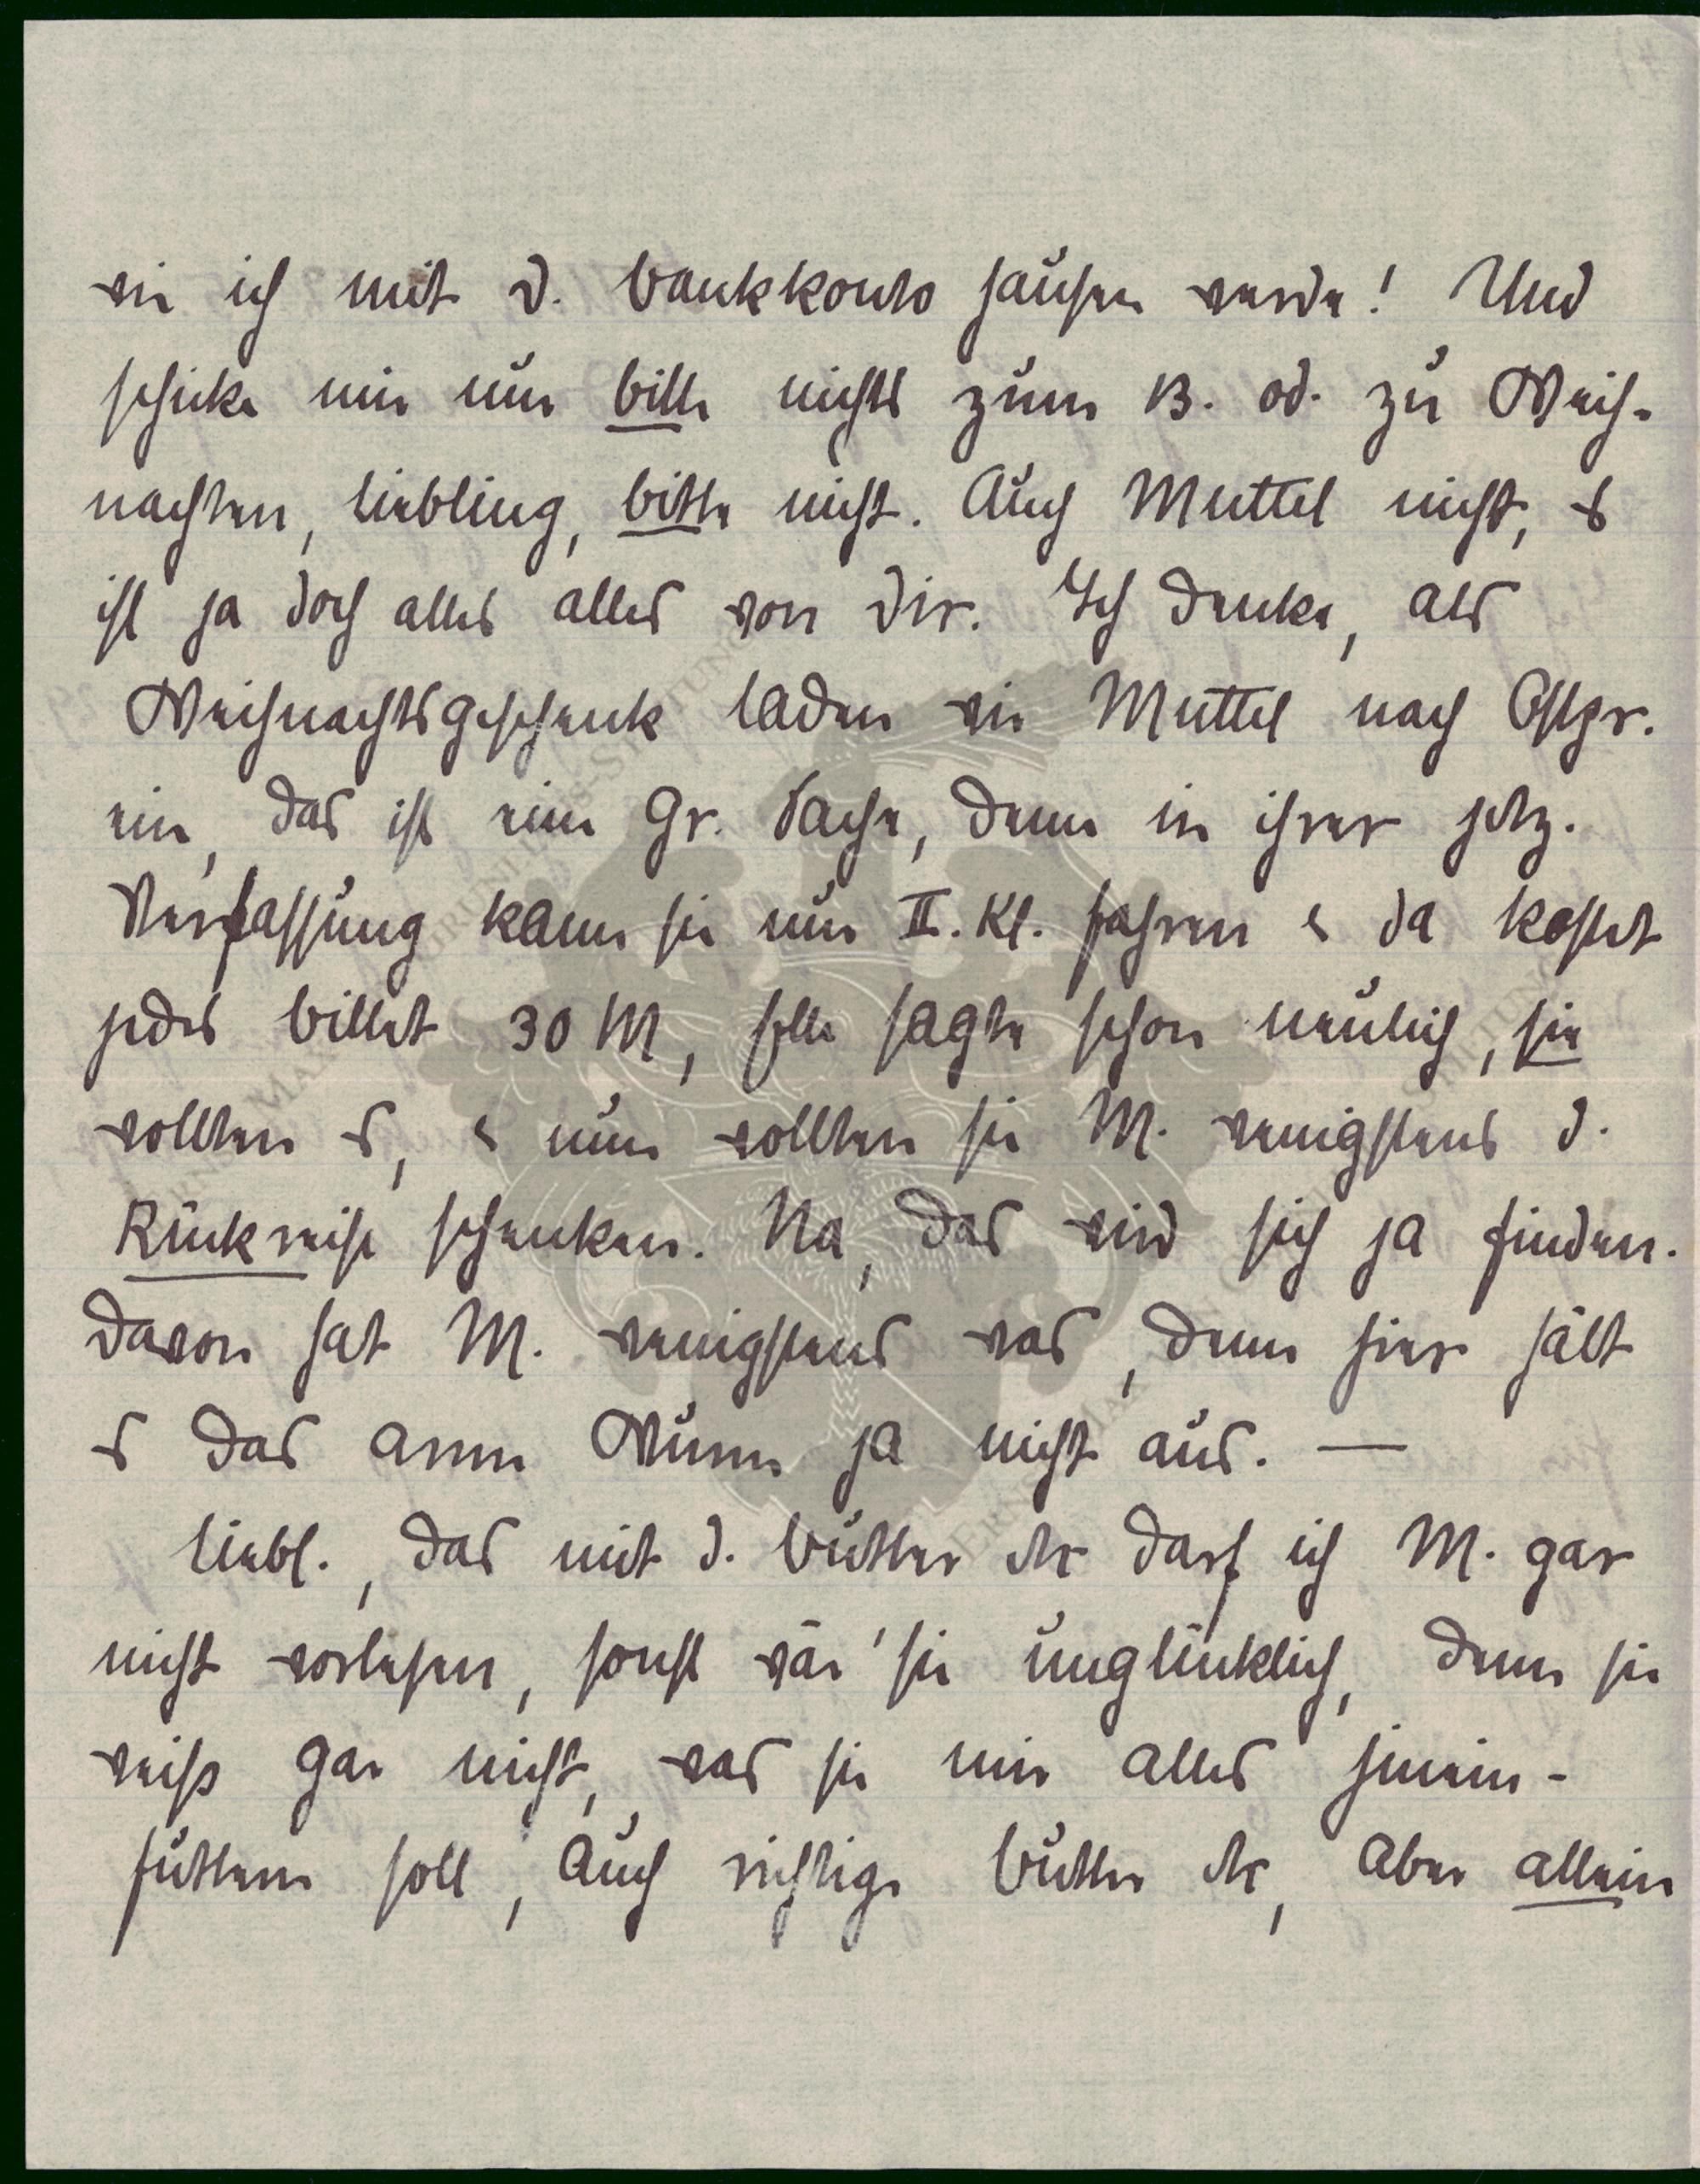 wie ich mit d. Bankkonto hausen werde! Und
schicke mir nur bitte nichts zum 13. od. zu Weih-
nachten, Liebling, bitte nicht. Auch Muttel nicht, es
ist ja doch alles alles von Dir. Ich denke, als
Weihnachtsgeschenk laden wir Muttel nach Ostpr.
ein, das ist eine gr. Sache, denn in ihrer jetz.
Verfassung kann sie nur II. Kl. fahren & da kostet
jedes Billet 30 M, sagte schon neulich, sie
wollten es, & nun wollten sie M. wenigstens d.
Rückreise schenken. Na, das wird sich ja finden.
Davon hat M. wenigstens was, denn hier hält
es das arme Wurm ja nicht aus. —
Liebl., das mit d. Butter etc darf ich M. gar
nicht vorlesen, sonst wär' sie unglücklich, denn sie
weiss gar nicht, was sie mir alles hinein-
futtern soll, auch richtige Butter etc, aber allein
MARTIN